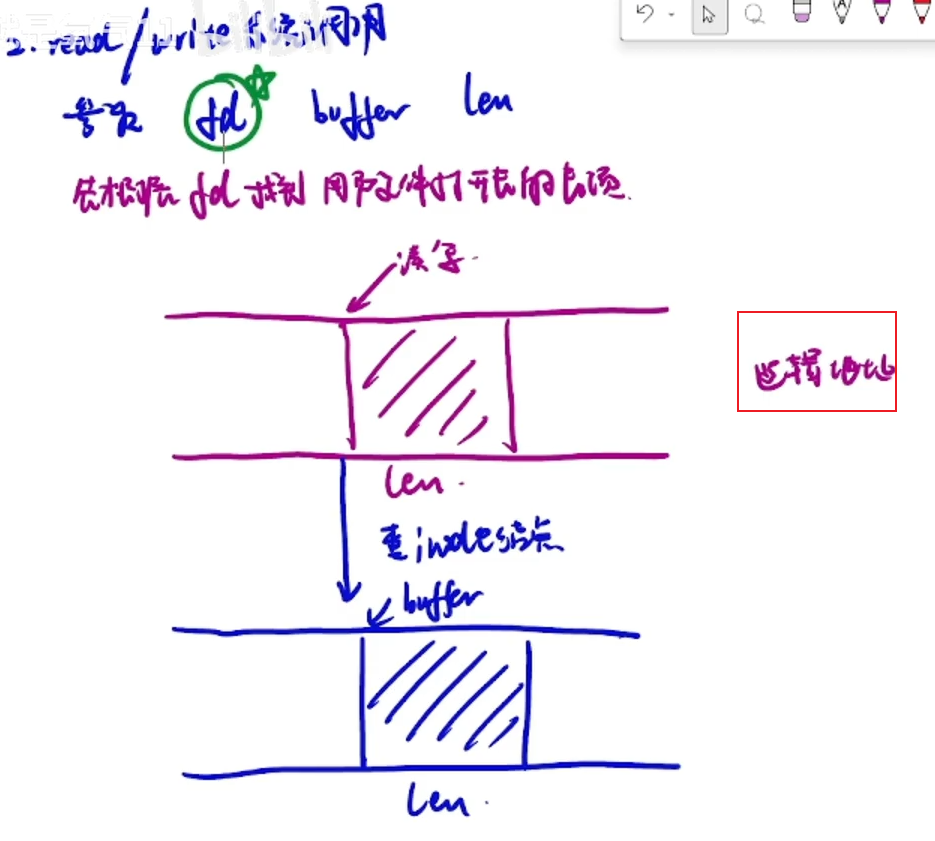 2. read/write系统调用
参数 fd buffer len
先根据 fd 找到 用户文件打开表的表项.
读/写.
逻辑地址
len.
查inode结点
buffer
len.